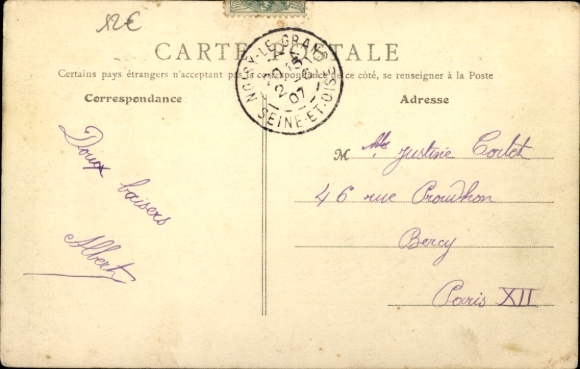 12€
CARTE POSTALE
Certains pays étrangers n'acceptant pas la correspondance de ce côté, se renseigner à la Poste
Correspondance
Adresse
NOISY-LE-GRAND
2-6
07
SEINE-ET-OISE
Doux baisers
Albert
M lle Justine Cortet
46 rue Proudhon
Bercy
Paris XII